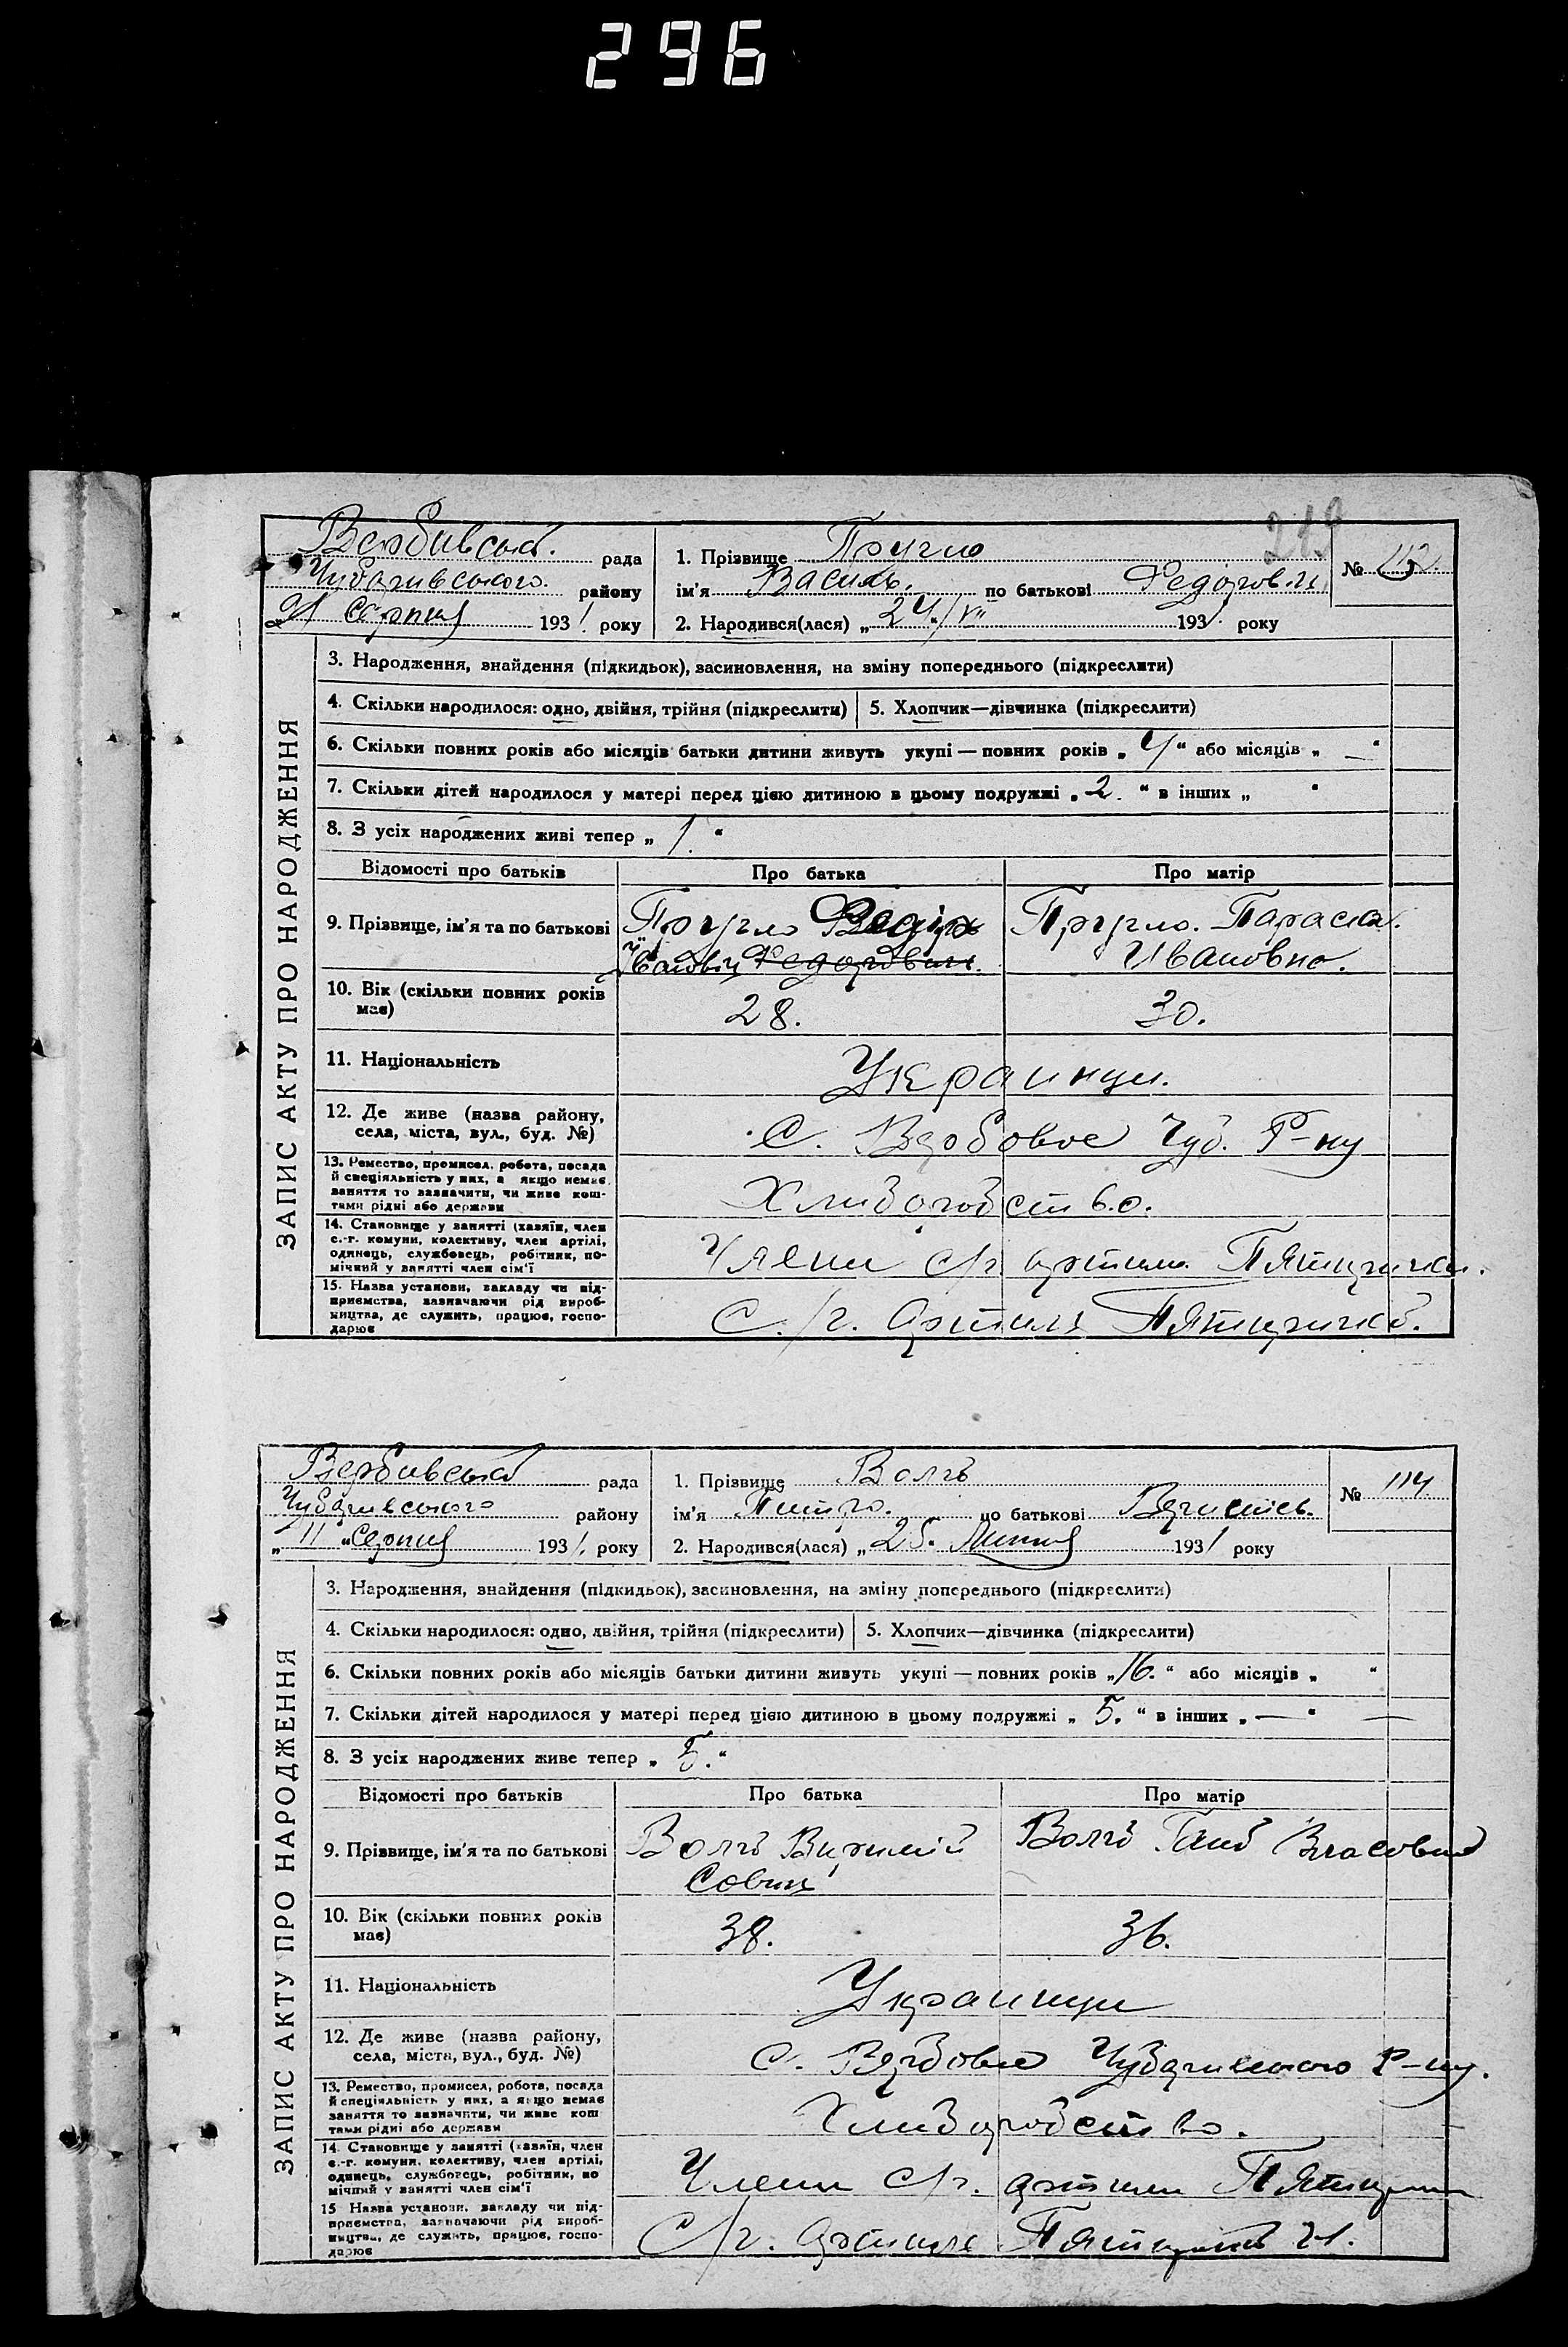 296
219
Вербивська рада
Чубаривського району
21 Серпня 1931 року
1. Прізвище Пругло
ім’я Василь. по батькові Федорович
2. Народився(лася) „ 24/VII 1931. року
№ 112
ЗАПИС АКТУ ПРО НАРОДЖЕННЯ
3. Народження, знайдення (підкидьок), засиновлення, на зміну попереднього (підкреслити)
4. Скільки народилося: одно, двійня, трійня (підкреслити) 5. Хлопчик—дівчинка (підкреслити)
6. Скільки повних років або місяців батьки дитини живуть укупі — повних років „ 4 “ або місяців „ — “
7. Скільки дітей народилося у матері перед цією дитиною в цьому подружжі „ 2. “ в інших „ “
8. З усіх народжених живі тепер „ 1. “
Відомості про батьків Про батька Про матір
9. Прізвище, ім’я та по батькові Пругло Федір Пругло. Параска.
Іванович Федорович. Ивановно.
10. Вік (скільки повних років
має) 28. 30.
11. Національність Украинци.
12. Де живе (назва району,
села, міста, вул., буд. №) С. Вербовое Чуб. Р-ну
13. Ремество, промисел, робота, посада
й спеціяльність у них, а якщо немає
заняття то зазначити, чи живе кош-
тами рідні або держави Хлиборобство.
14. Становище у занятті (хазяїн, член
с.-г. комуни, колективу, член артілі,
одинець, службовець, робітник, по-
мічний у занятті член сім’ї Члени с/г. артили Пятиричка.
15. Назва установи, закладу чи під-
приємства, зазначаючи рід вироб-
ництва, де служить, працює, госпо-
дарює С./г. Артиль Пятиричка.
Вербивська рада
Чубаривського району
„ 11 “ Серпня 1931. року
1. Прізвище Волгъ
ім’я Питро. по батькові
2. Народився(лася) „ 25. Липня 1931 року
№ 114
ЗАПИС АКТУ ПРО НАРОДЖЕННЯ
3. Народження, знайдення (підкидьок), засиновлення, на зміну попереднього (підкреслити)
4. Скільки народилося: одно, двійня, трійня (підкреслити) 5. Хлопчик—дівчинка (підкреслити)
6. Скільки повних років або місяців батьки дитини живуть укупі — повних років „ 16. “ або місяців „ “
7. Скільки дітей народилося у матері перед цією дитиною в цьому подружжі „ 5. “ в інших „ — “ —
8. З усіх народжених живе тепер „ 5. “
Відомості про батьків Про батька Про матір
9. Прізвище, ім’я та по батькові Власовна
10. Вік (скільки повних років
має) 38. 36.
11. Національність Украинци
12. Де живе (назва району,
села, міста, вул., буд. №) С. Вербовое Р-ну.
13. Ремество, промисел, робота, посада
й спеціяльність у них, а якщо немає
заняття то зазначити, чи живе кош
тами рідні або держави Хлиборобство.
14. Становище у занятті (хазяїн, член
с.-г. комуни, колективу, член артілі,
одинець, службовець, робітник, по
мічний у занятті член сім’ї Члени с/г. артили
15 Назва установи, закладу чи під-
приємства, зазначаючи рід вироб-
ництва, де служить, працює, госпо-
дарює С/г. Артиль